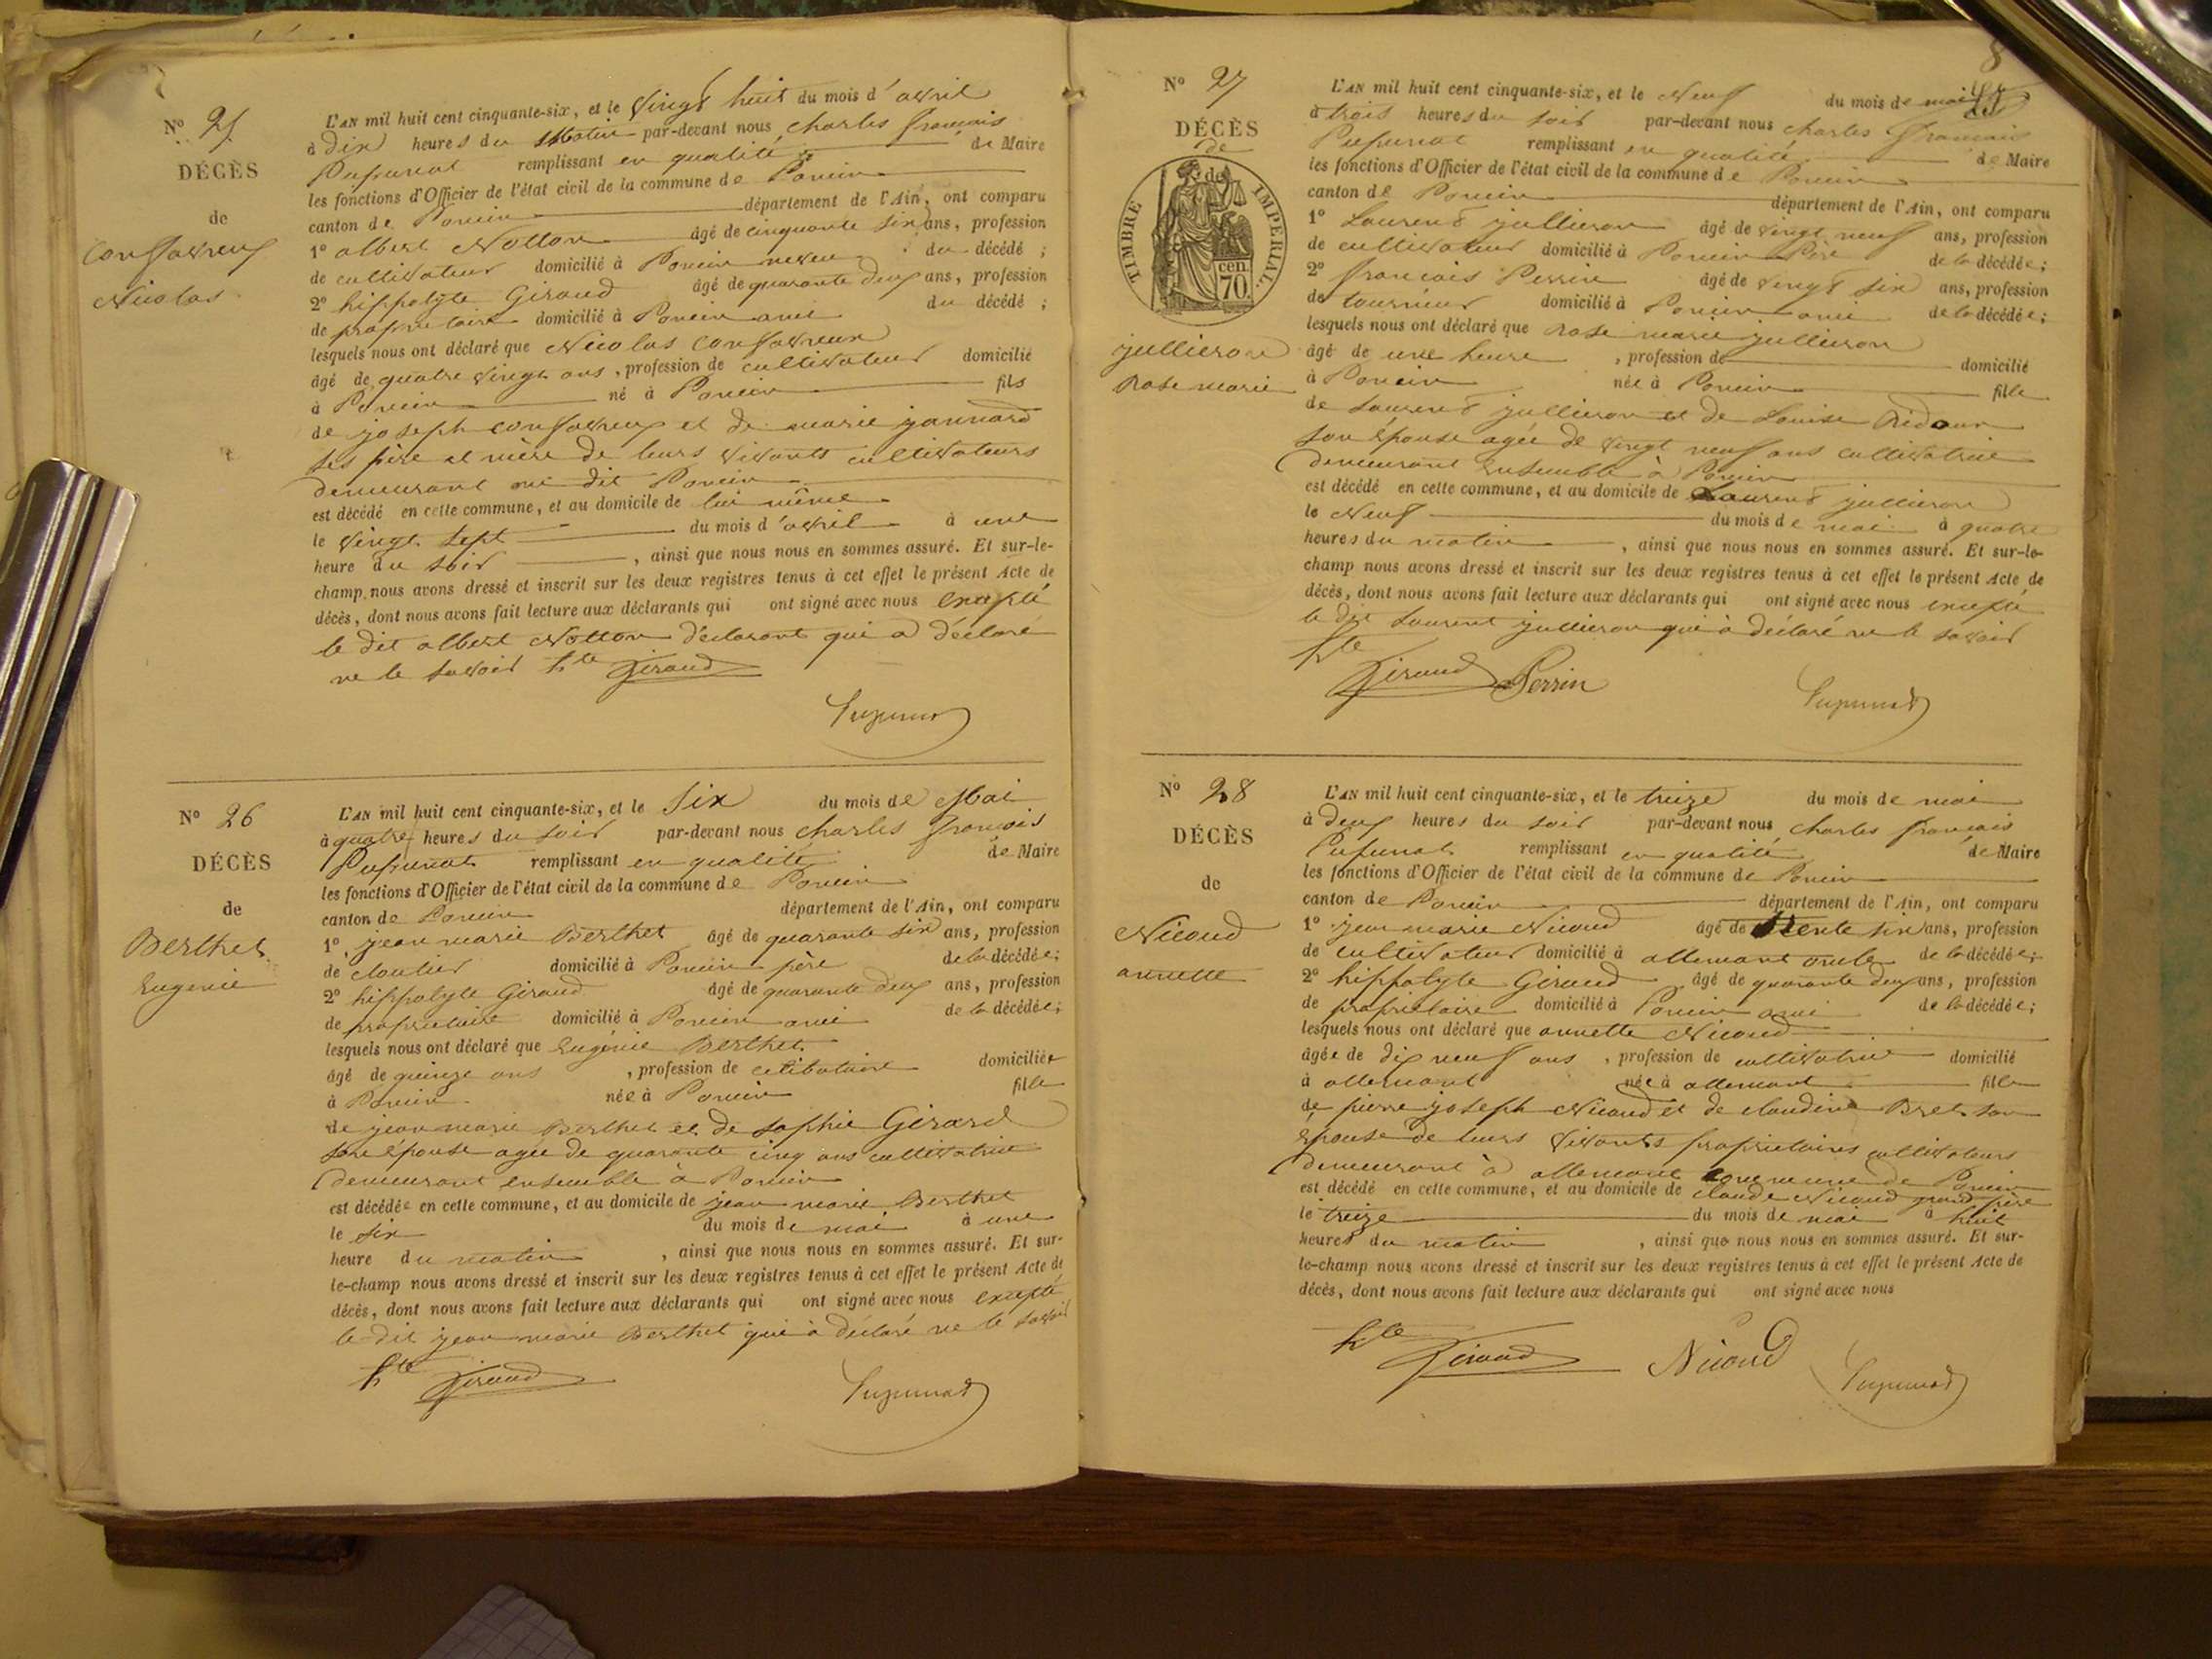 N° 25
DÉCÈS
de
Confavreux
Nicolas
L'AN mil huit cent cinquante-six, et le vingt huit du mois d'avril
à dix heures du matin par-devant nous charles françois
remplissant en qualité de Maire
les fonctions d'Officier de l'état civil de la commune de Poncin
canton de Poncin département de l'Ain, ont comparu
1° albert Notton âgé de cinquante six ans, profession
de cultivateur domicilié à Poncin neveu du décédé ;
2° hippolyte Giraud âgé de quarante deux ans, profession
de proprietaire domicilié à Poncin ami du décédé ;
lesquels nous ont déclaré que Nicolas Confavreux
âgé de quatre vingt ans, profession de cultivateur domicilié
à Poncin né à Poncin fils
de joseph confavreux et de marie
ses père et mère de leurs vivants cultivateurs
demeurant au dit Poncin
est décédé en cette commune, et au domicile de lui même
le vingt sept du mois d'avril à une
heure du soir, ainsi que nous nous en sommes assuré. Et sur-le-
champ, nous avons dressé et inscrit sur les deux registres tenus à cet effet le présent Acte de
décès, dont nous avons fait lecture aux déclarants qui ont signé avec nous excepté
le dit albert Notton déclarant qui a déclaré
ne le savoir hte Giraud
N° 26
DÉCÈS
de
Berthet
Eugenie
L'AN mil huit cent cinquante-six, et le six du mois de Mai
à quatre heures du soir par-devant nous charles françois
remplissant en qualité de Maire
les fonctions d'Officier de l'état civil de la commune de Poncin
canton de Poncin département de l'Ain, ont comparu
1° jean marie Berthet âgé de quarante six ans, profession
de cloutier domicilié à Poncin père de la décédée ;
2° hippolyte Giraud âgé de quarante deux ans, profession
de proprietaire domicilié à Poncin ami de la décédée ;
lesquels nous ont déclaré que Eugénie Berthet
âgé de quinze ans, profession de celibataire domiciliée
à Poncin née à Poncin fille
de jean marie Berthet et de sophie Girard
son épouse agée de quarante cinq ans cultivatrice
demeurant ensemble à Poncin
est décédée en cette commune, et au domicile de jean marie Berthet
le six du mois de mai à une
heure du matin, ainsi que nous nous en sommes assuré. Et sur-
le-champ nous avons dressé et inscrit sur les deux registres tenus à cet effet le présent Acte de
décès, dont nous avons fait lecture aux déclarants qui ont signé avec nous excepté
le dit jean marie Berthet qui à déclaré ne le savoir
hte Giraud
8
N° 27
DÉCÈS
de
TIMBRE IMPERIAL.
70 cen.
jullieron
rose marie
L'AN mil huit cent cinquante-six, et le Neuf du mois de mai
à trois heures du soir par-devant nous charles françois
remplissant en qualité de Maire
les fonctions d'Officier de l'état civil de la commune de Poncin
canton de Poncin département de l'Ain, ont comparu
1° Laurent jullieron âgé de vingt neuf ans, profession
de cultivateur domicilié à Poncin Père de la décédée ;
2° françois Perrin âgé de vingt six ans, profession
de tourneur domicilié à Poncin ami de la décédée ;
lesquels nous ont déclaré que rose marie jullieron
âgé de une heure, profession de domicilié
à Poncin née à Poncin fille
de Laurent jullieron et de Louise
son épouse agée de vingt neuf ans cultivatrice
demeurant ensemble à Poncin
est décédé en cette commune, et au domicile de Laurent jullieron
le Neuf du mois de mai à quatre
heures du matin, ainsi que nous nous en sommes assuré. Et sur-le-
champ nous avons dressé et inscrit sur les deux registres tenus à cet effet le présent Acte de
décès, dont nous avons fait lecture aux déclarants qui ont signé avec nous excepté
le dit Laurent jullieron qui à déclaré ne le savoir
hte Giraud Perrin
N° 28
DÉCÈS
de
Nicoud
annette
L'AN mil huit cent cinquante-six, et le treize du mois de mai
à deux heures du soir par-devant nous charles françois
remplissant en qualité de Maire
les fonctions d'Officier de l'état civil de la commune de Poncin
canton de Poncin département de l'Ain, ont comparu
1° jean marie Nicoud âgé de trente six ans, profession
de cultivateur domicilié à allemant oncle de la décédée ;
2° hippolyte Giraud âgé de quarante deux ans, profession
de proprietaire domicilié à Poncin ami de la décédée ;
lesquels nous ont déclaré que annette Nicoud
âgée de dix neuf ans, profession de cultivatrice domicilié
à allemant née à allemant fille
de pierre joseph Nicoud et de claudine Bret son
épouse de leurs vivants proprietaires cultivateurs
demeurant à allemant commune de Poncin
est décédé en cette commune, et au domicile de claude Nicoud grand père
le treize du mois de mai à huit
heures du matin, ainsi que nous nous en sommes assuré. Et sur-
le-champ nous avons dressé et inscrit sur les deux registres tenus à cet effet le présent Acte de
décès, dont nous avons fait lecture aux déclarants qui ont signé avec nous
hte Giraud Nicoud